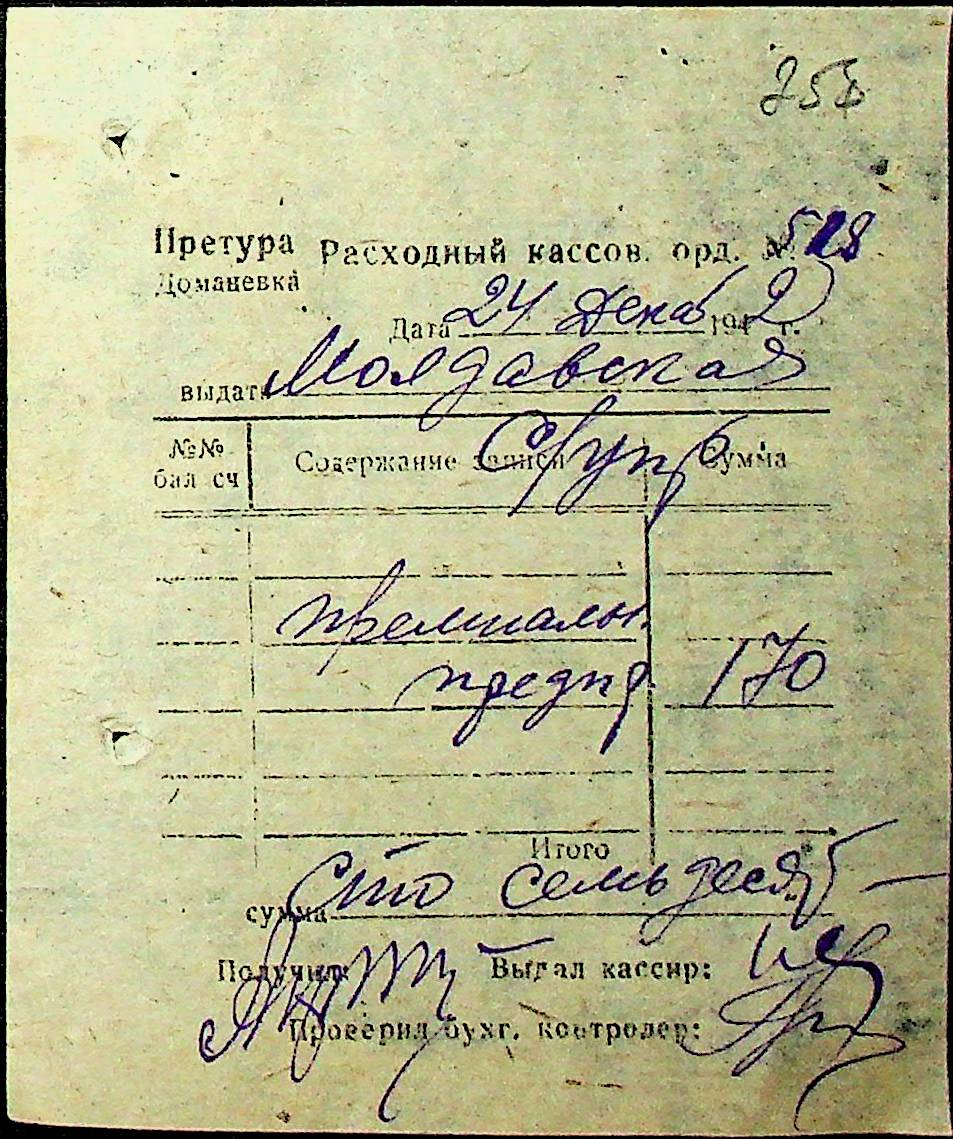 Претура Расходный кассов. орд. №
Доманевка
Дата 24 декаб 1942 г.
выдать Молдавская
№№ бал сч Содержание записи Сумма
премиальн.
предпр. 170
Итого
сумма Сто семьдесят
Получил: Выдал кассир:
Проверил бухг. контролер: